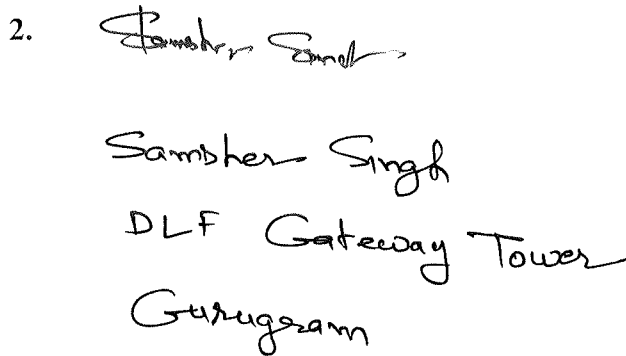 2. Samsher Singh
Samsher Singh
DLF Gateway Tower
Gurugram